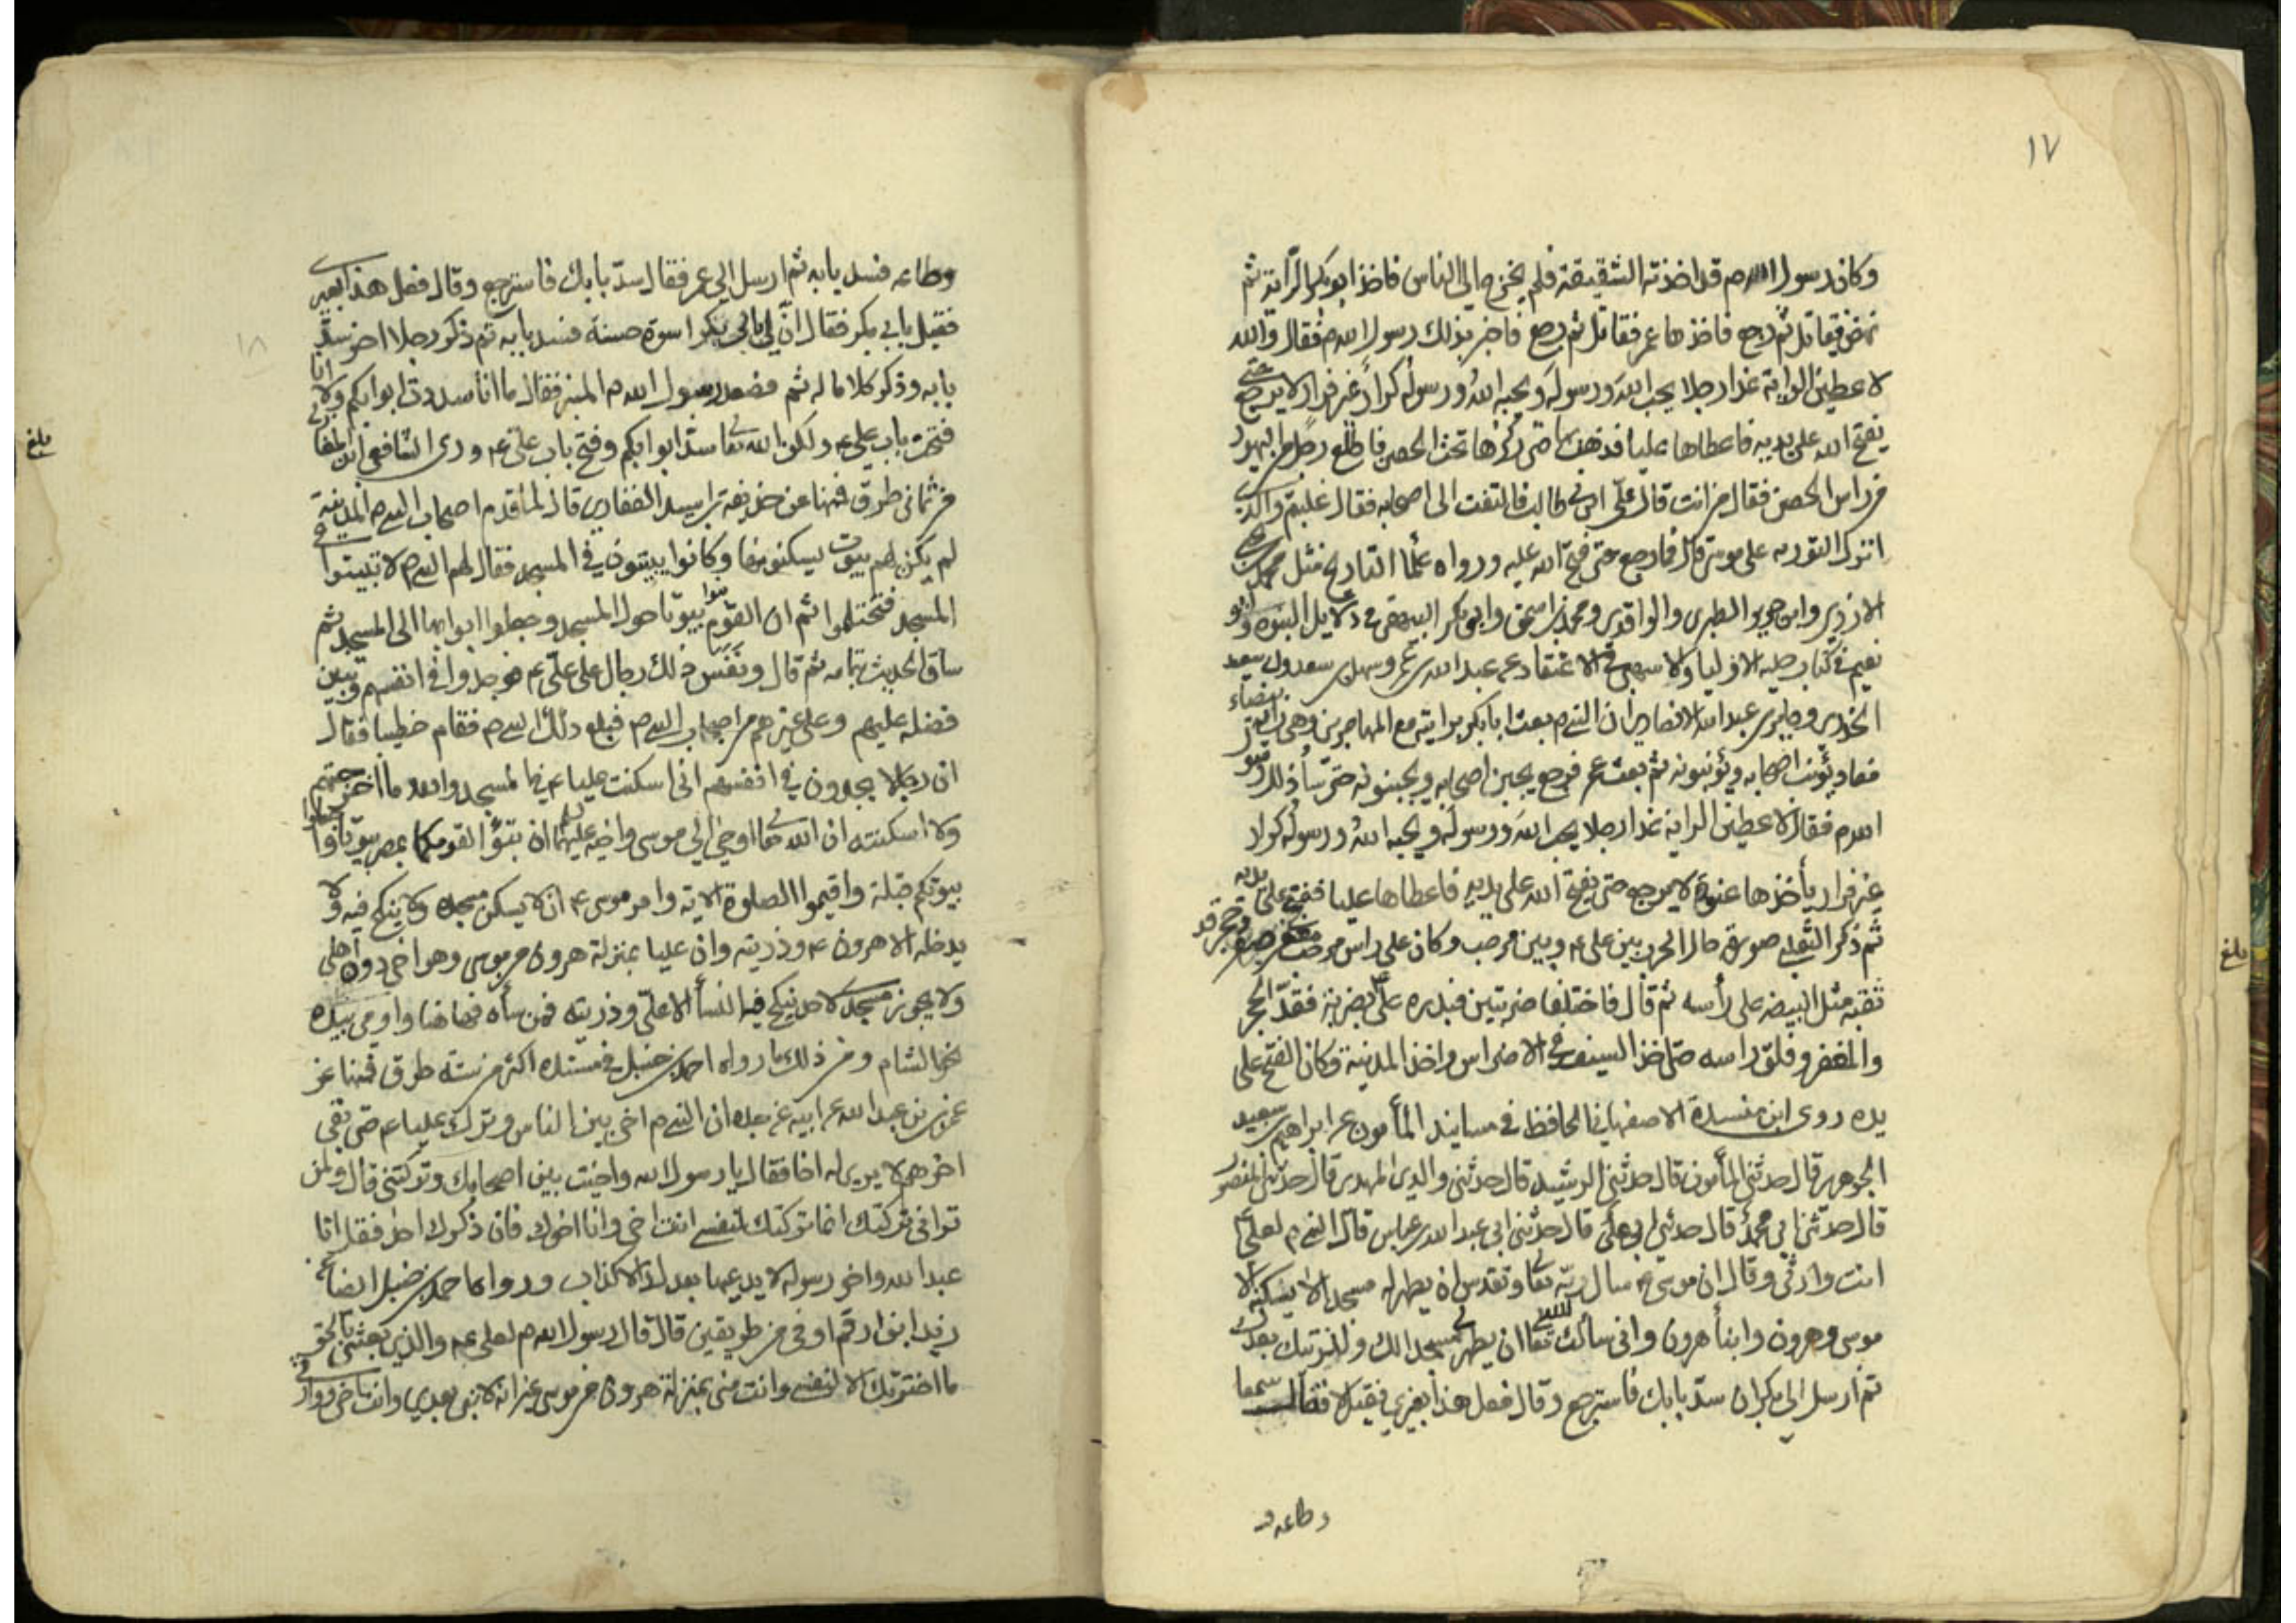 ١٧
وكان رسول الله ص قد اخذته الشقيقة فلم يخرج الى الناس فاخذ ابو بكر الراية ثم
نهض فقاتل ثم رجع فاخذها عمر فقاتل ثم رجع فاخبر بذلك رسول الله ص فقال والله
لاعطين الراية غدا رجلا يحب الله ورسوله ويحبه الله ورسوله كرار غير فرار لا يرجع حتى
يفتح الله على يديه فاعطاها عليا فذهب بها حتى ركزها تحت الحصن فاطلع رجل من اليهود
من راس الحصن فقال من انت قال علي ابن ابي طالب فالتفت الى اصحابه فقال غلبتم والذي
انزل التورية على موسى قال فما رجع حتى فتح الله عليه ورواه علما التاريخ مثل محمد بن يحيى
الازدي وابن جرير الطبرى والواقدى ومحمد بن اسحق وابى بكر البيهقى في دلايل النبوة وابو
نعيم في كتاب حليه الاوليا والاشنهى في الاعتقاد عن عبد الله بن عمر وسهل بن سعد وابى سعيد
الخدرى وجابر بن عبد الله الانصارى ان النبي ص بعث ابا بكر برايته مع المهاجرين وهى راية بيضاء
فعاد يؤنب اصحابه ويؤنبونه ثم بعث عمر فرجع يجبن اصحابه ويجبنونه حتى ساء ذلك رسول
الله ص فقال لاعطين الراية غدا رجلا يحب الله ورسوله ويحبه الله ورسوله كرار
غير فرار يأخذها عنوة لا يرجع حتى يفتح الله على يديه فاعطاها عليا ففتح على يديه
ثم ذكر الثعلبى صورة حال الحرب بين على ع وبين مرحب وكان على راس مرحب مغفر صفر وحجر قد
ثقبه مثل البيضه على رأسه ثم قال فاختلفا ضربتين فبدره على ع بضربة فقد الحجر
والمغفر وفلق راسه حتى اخذ السيف في الاضراس واخذ المدينة وكان الفتح على
يده روى ابن منده الاصفهانى الحافظ في مسانيد المأمون عن ابراهيم بن سعيد
الجوهرى قال حدثنى المأمون قال حدثنى الرشيد قال حدثنى والدى المهدى قال حدثنى المنصور
قال حدثنى ابى محمد قال حدثنى ابى على قال حدثنى ابى عبد الله بن عباس قال النبى ص لعلى ع
انت وارثى وقال ان موسى ع سال ربه تعالى وتقدس ان يطهر له مسجدا لا يسكنه الا
موسى وهرون وابنا هرون وانى سألت الله تعالى ان يطهر مسجدا لك ولذريتك بعدك
ثم ارسل الى ابى بكر ان سد بابك فاسترجع وقال فعل هذا بغيرى فقيل لا فقال سمعا
وطاعه
وطاعه فسد بابه ثم ارسل الى عمر فقال سد بابك فاسترجع وقال فعل هذا بغيرى
فقيل بابى بكر فقال ان لى بابى بكر اسوة حسنة فسد بابه ثم ذكر رجلا اخر سد
بابه وذكر كلاما له ثم فصعد رسول الله ص المنبر فقال ما انا سددت ابوابكم ولا انا
فتحت باب على ع ولكن الله تعالى سد ابوابكم وفتح باب على ع وروى الشافعى ابن المغازلى
من ثمانى طرق فمنها عن حذيفة بن اسيد الغفارى قال لما قدم اصحاب النبى ص المدينة
لم يكن لهم بيوت يسكنونها وكانوا يبيتون في المسجد فقال لهم النبى ص لا تبيتوا في
المسجد فتحتلموا ثم ان القوم بنوا بيوتا حول المسجد وجعلوا ابوابها الى المسجد ثم
ساق الحديث بتمامه ثم قال ونفس ذلك رجال على على ع فوجدوا في انفسهم وتبين
فضله عليهم وعلى غيرهم من اصحاب النبى ص فبلغ ذلك النبى ص فقام خطيبا فقال
ان رجالا يجدون في انفسهم انى اسكنت عليا ع في المسجد والله ما اخرجتهم
ولا اسكنته ان الله تعالى اوحى الى موسى واخيه عليهما ان تبوا لقومكما بمصر بيوتا واجعلوا
بيوتكم قبلة واقيموا الصلوة الاية وامر موسى ع ان لا يسكن مسجده ولا ينكح فيه ولا
يدخله الا هرون ع وذريته وان عليا بمنزلة هرون من موسى وهو اخى دون اهلى
ولا يجوز مسجدى لاحد ينكح فيه النسأ الا على وذريته فمن ساه فهاهنا واومى بيده
نحو الشام ومن ذلك ما رواه احمد بن حنبل في مسنده اكثر من ستة طرق فمنها عن
عمر بن عبد الله عن ابيه عن جده ان النبى ص اخى بين الناس وترك عليا ع حتى بقى
اخرهم لا يرى له اخا فقال يا رسول الله واخيت بين اصحابك وتركتنى قال ولمن
ترانى تركتك انما تركتك لنفسى انت اخى وانا اخوك فان ذكرك احد فقل انا
عبد الله واخو رسوله لا يدعيها بعدك الا كذاب وروى احمد بن حنبل ايضا عن
زيد ابن ارقم اوفى من طريقين قال قال رسول الله ص لعلى ع والذى بعثنى بالحق
ما اخترتك الا لنفسى وانت منى بمنزلة هرون من موسى غير انه لا نبى بعدى وانت اخى ووارثى
١٨
بلغ
بلغ